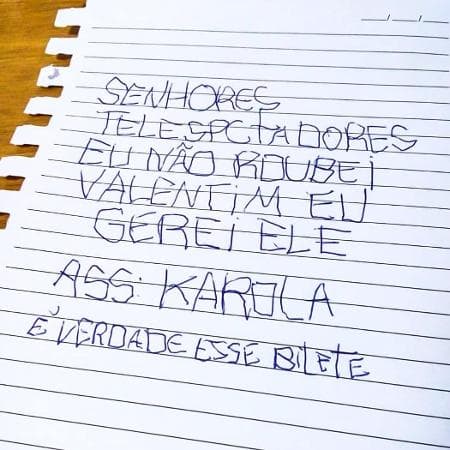 SENHORES
TELESPCTADORES
EU NÃO ROUBEI
VALENTIM EU
GEREI ELE
ASS: KAROLA
É VERDADE ESSE BILETE